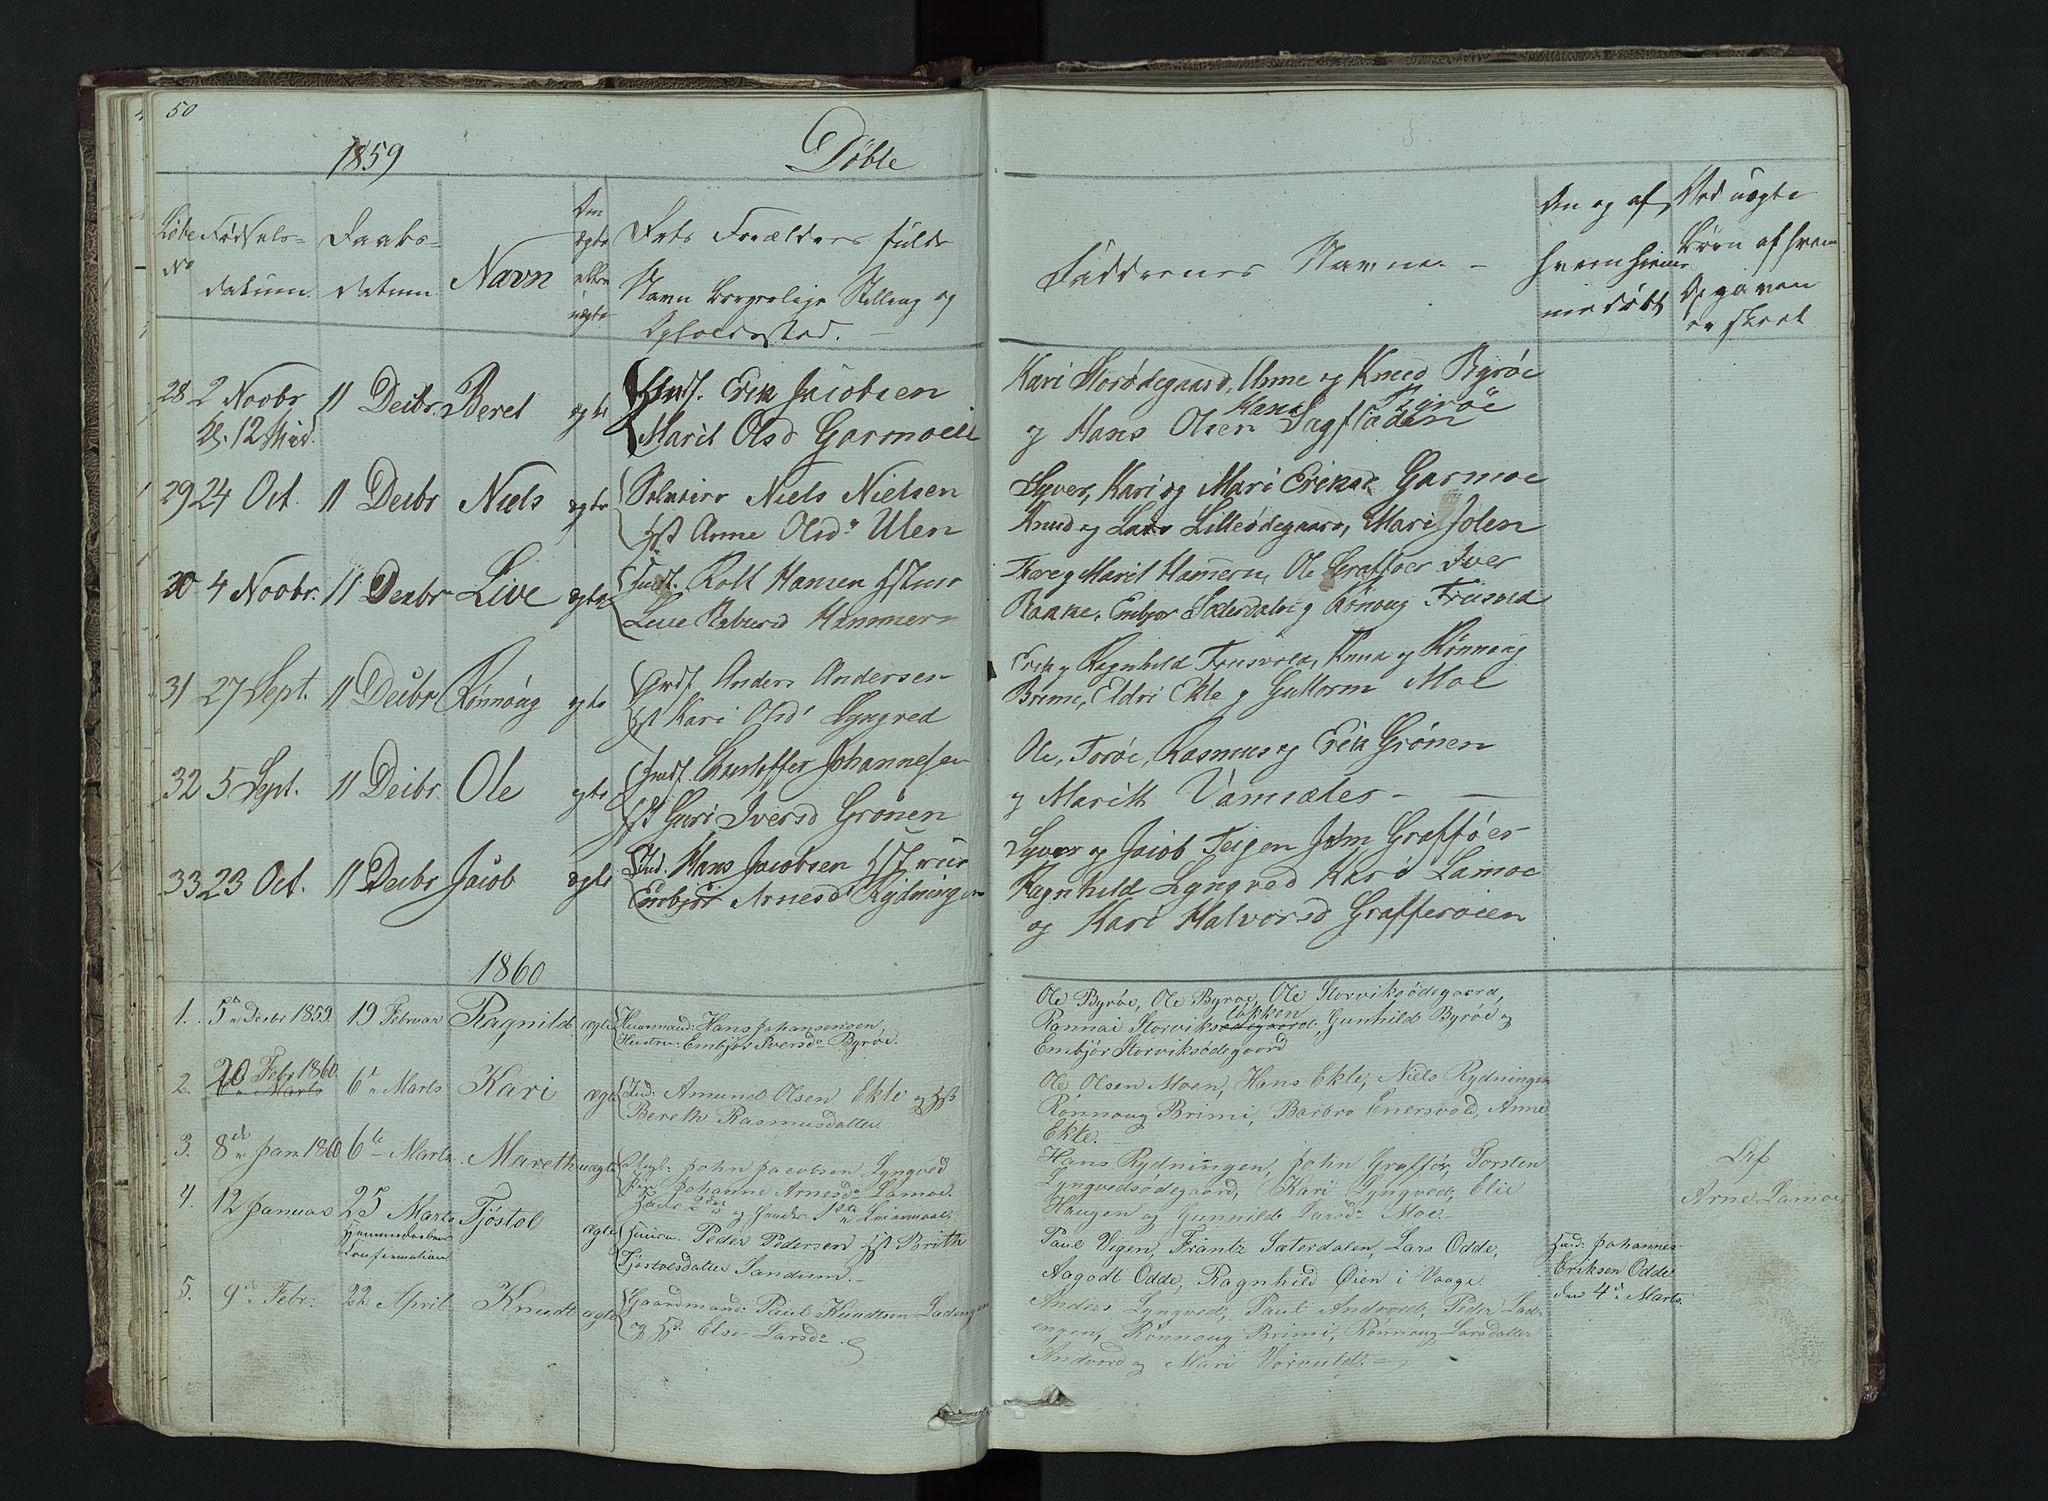 50
1859
Døbte
Løbe No
Fødsels-
datum.
Daabs-
datum.
Navn
Om
ægte
eller
uægte
Dets Forældres fulde
Navn borgerlige Stilling og
Opholdssted.
Faddernes Navne. -
Om og af
hvem hjem-
medøbt
Ved uægte
Børn af hvem
Opgaven
er skeet
28 2 Novbr 11 Decbr. Beret ægte Erik Jacobsen
Kl. 12 Mid. Marit Olsd Garmoeie
Kari Storødegaard, Anne og Knud Byrøe
Hans Byrøe
og Hans Olsen Sagfladen
29 24 Oct. 11 Decbr Niels ægte Niels Nielsen
Hst Anne Olsd. Ulen
Syver, Kari og Mari Eriksd. Garmoe
Knud og Lars Lilleødegaard, Mari Jolen
30 4 Novbr. 11 Decbr Live ægte Inds. Rolf Hansen Hstru
Live Hammern
Tore og Marit Hamern, Ole Graffoer Iver
Raakke, Embjør Sæterdal og Rønnoug Frisvold
31 27 Sept. 11 Decbr Rønnoug ægte Inds. Anders Andersen
Hst Kari Olsd. Lyngved
Erik og Ragnhild Frusvold, Knud og Rønnoug
Brimi, Eldri Ekle og Guttorm Moe
32 5 Sept. 11 Decbr. Ole ægte Inds. Johannesen
Hst Guri Iversd Grønen
Ole, Torøe, Rasmus og Erik Grønen
og Marith Vamsæter -
33 23 Oct. 11 Decbr Jacob ægte Ind. Hans Jacobsen Hstrue
Embjør Arnesd Rydningen
Syver og Jacob Teigen John Graffoer
Ragnhild Lyngved Kari Lamoe
og Kari Halvorsd Grafferøien
1860
1. 5te Decbr 1859 19 Februar Ragnild ægte Huusmand: Hans Johannsensen,
Hustru: Embjør Iversdr Byrøe.
Ole Byrøe, Ole Byrøe, Ole Storviksødegaard,
løkken
Rannai Storviksødegaard, Gunhild Byrøe og
Embjør Storviksødegaard
2. 20 Febr 1860. 6te Marts Kari ægte Ind: Amund Olsen Ekle og Hst
6te Marts
Bereth Rasmusdatter
Ole Olsen Moen, Hans Ekle, Niels Rydningen
Rønnoug Brimi, Barbro Enersvold, Anne
Ekle.-
3. 8de Jan 1860 6te Marts. Mareth uægte Ungk: John Jacobsen Lyngved
Pige Johanne Arnesdr Lamoe.
Hans 2det og hendes 1ste Leiermaal.
Hans Rydningen, John Graffør, Torsten
Lyngvedsødegaard, Kari Lyngved, Elie
Haugen og Gunnild Larsdr Moe.-
Lif
Arne Lamoe
4. 12 Januar 25 Marts Tjøstol ægte Huusm. Peder Pedersen Hst Brith
Hjemmedaabens
Confirmation
Tjøstolsdatter Sandum.-
Paul Vigen, Frantz Sæterdalen, Lars Odde,
Aagodt Odde, Ragnhild Øien i Vaage.
Hmd: Johannes
Eriksen Odde
den 4de Marts.
5. 9de Febr: 22 April Knudt ægte Gaardmand: Paul Knudtsen Ladengen
og Hst. Else Larsdr.
Anders Lyngved, Paul Andvord, Peder Lad-
engen, Rønnoug Brimi, Rønnoug Larsdatter
Andvord og Mari Vorvuld.-